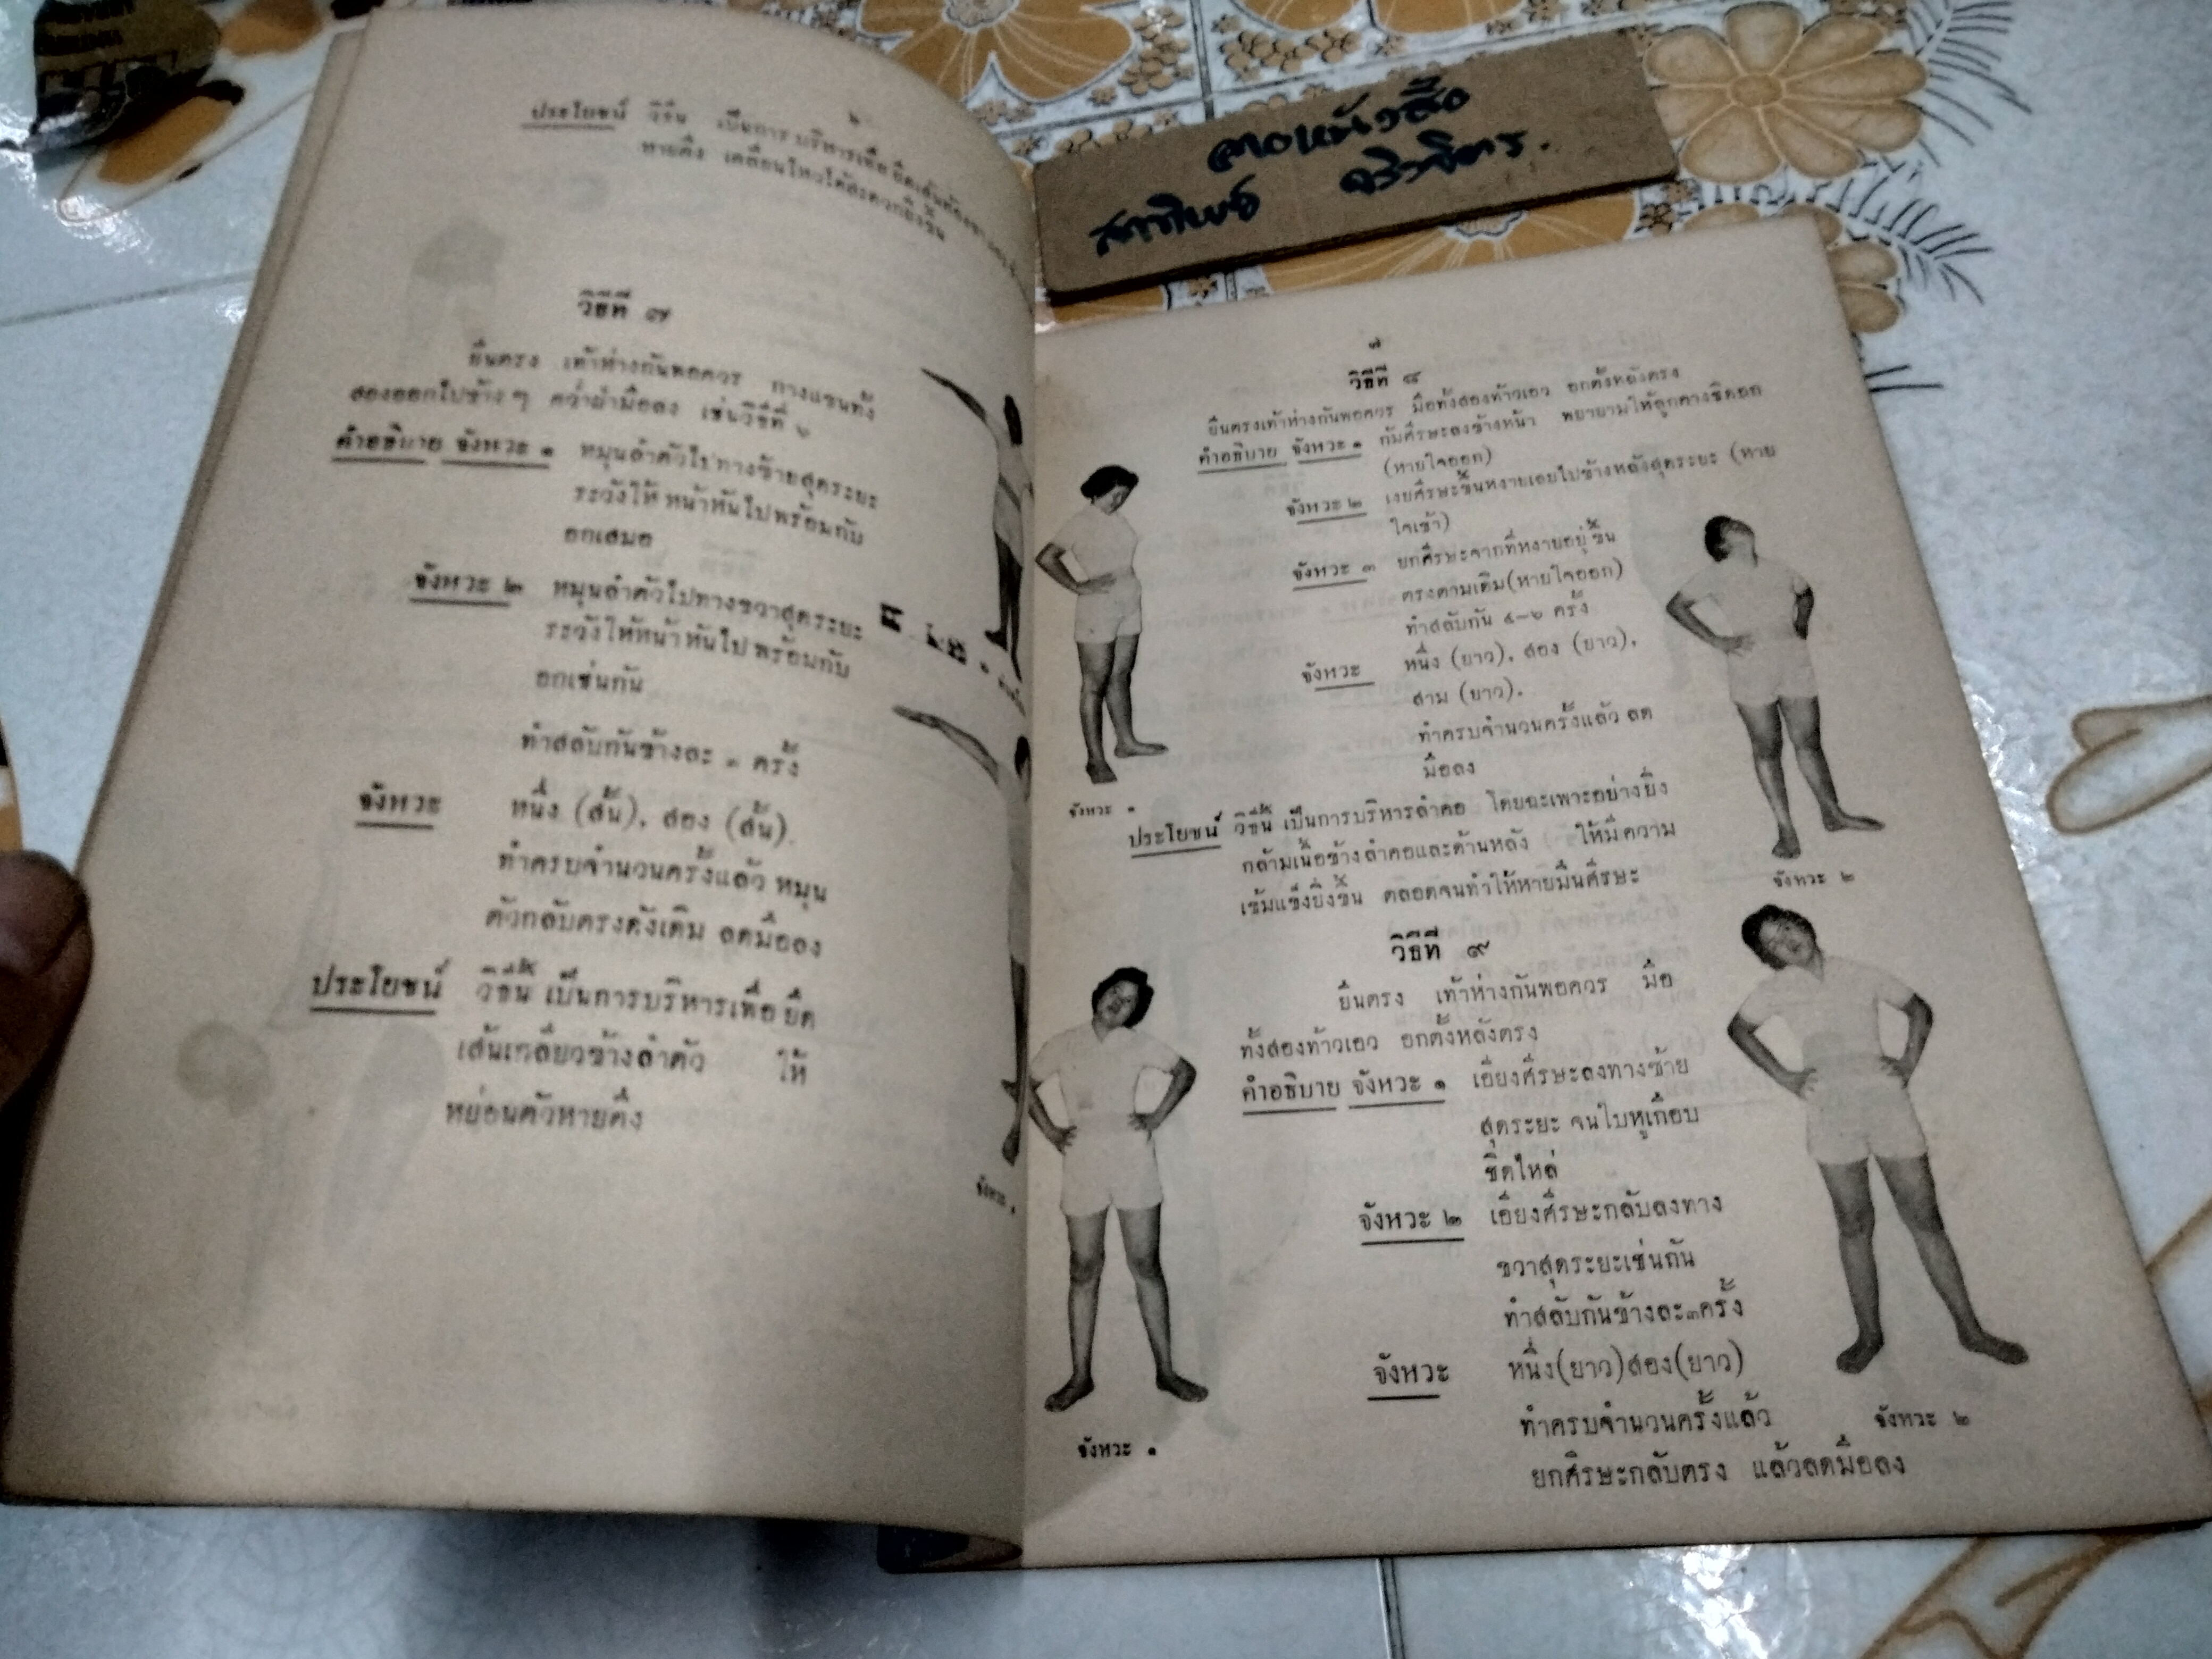 ๖
ประโยชน์ วิธีนี้ เป็นการบริหารเพื่อยืดเส้น
หายตึง เคลื่อนไหวได้สะดวกยิ่งขึ้น
วิธีที่ ๗
ยืนตรง เท้าห่างกันพอควร กางแขนทั้ง
สองออกไปข้างๆ คว่ำฝ่ามือลง เช่นวิธีที่ ๖
คำอธิบาย จังหวะ ๑ หมุนลำตัวไปทางซ้ายสุดระยะ
ระวังให้ หน้าหันไปพร้อมกับ
อกเสมอ
จังหวะ ๒ หมุนลำตัวไปทางขวาสุดระยะ
ระวังให้หน้าหันไป พร้อมกับ
อกเช่นกัน
ทำสลับกันข้างละ ๓ ครั้ง
จังหวะ หนึ่ง (สั้น), สอง (สั้น).
ทำครบจำนวนครั้งแล้ว หมุน
ตัวกลับตรงดังเดิม ลดมือลง
ประโยชน์ วิธีนี้ เป็นการบริหารเพื่อ ยืด
เส้นเกลียวข้างลำตัว ให้
หย่อนตัวหายตึง
จังหวะ ๑
๗
วิธีที่ ๘
ยืนตรงเท้าห่างกันพอควร มือทั้งสองท้าวเอว อกตั้งหลังตรง
คำอธิบาย จังหวะ ๑ ก้มศีรษะลงข้างหน้า พยายามให้ลูกคางชิดอก
(หายใจออก)
จังหวะ ๒ เงยศีรษะขึ้นหงายเอนไปข้างหลังสุดระยะ (หาย
ใจเข้า)
จังหวะ ๓ ยกศีรษะจากที่หงายอยู่ ขึ้น
ตรงตามเดิม(หายใจออก)
ทำสลับกัน ๔-๖ ครั้ง
จังหวะ หนึ่ง (ยาว), สอง (ยาว),
สาม (ยาว).
ทำครบจำนวนครั้งแล้ว ลด
มือลง
จังหวะ ๑
ประโยชน์ วิธีนี้ เป็นการบริหารลำคอ โดยฉะเพาะอย่างยิ่ง
กล้ามเนื้อข้างลำคอและด้านหลัง ให้มีความ
เข้มแข็งยิ่งขึ้น ตลอดจนทำให้หายมึนศีรษะ
จังหวะ ๒
วิธีที่ ๙
ยืนตรง เท้าห่างกันพอควร มือ
ทั้งสองท้าวเอว อกตั้งหลังตรง
คำอธิบาย จังหวะ ๑ เอียงศีรษะลงทางซ้าย
สุดระยะ จนใบหูเกือบ
ชิดไหล่
จังหวะ ๒ เอียงศีรษะกลับลงทาง
ขวาสุดระยะเช่นกัน
ทำสลับกันข้างละ๓ครั้ง
จังหวะ หนึ่ง(ยาว)สอง(ยาว)
ทำครบจำนวนครั้งแล้ว
ยกศีรษะกลับตรง แล้วลดมือลง
จังหวะ ๑
จังหวะ ๒